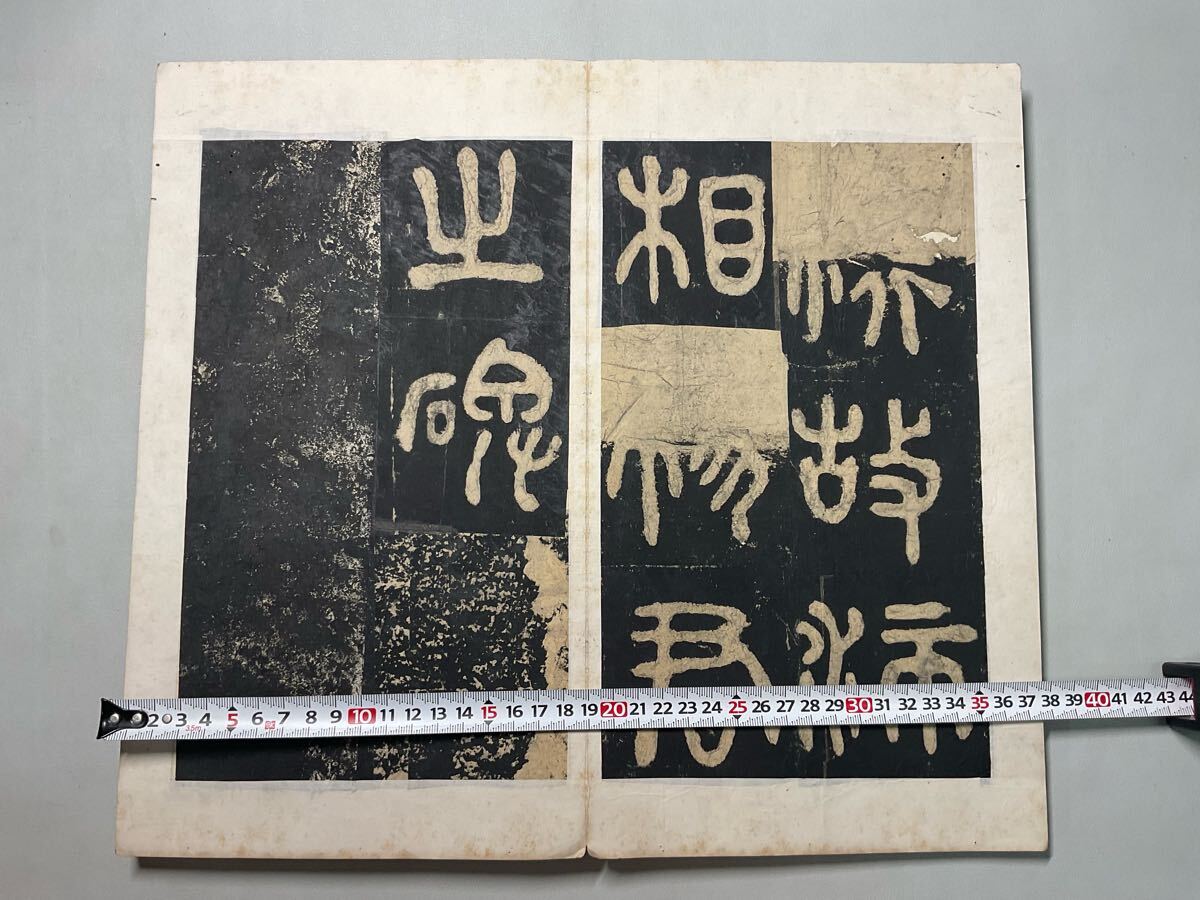 漢故沛
相楊君
之碑
2 3 4 5 6 7 8 9 10 11 12 13 14 15 16 17 18 19 20 21 22 23 24 25 26 27 28 29 30 31 32 33 34 35 36 37 38 39 40 41 42 43 44